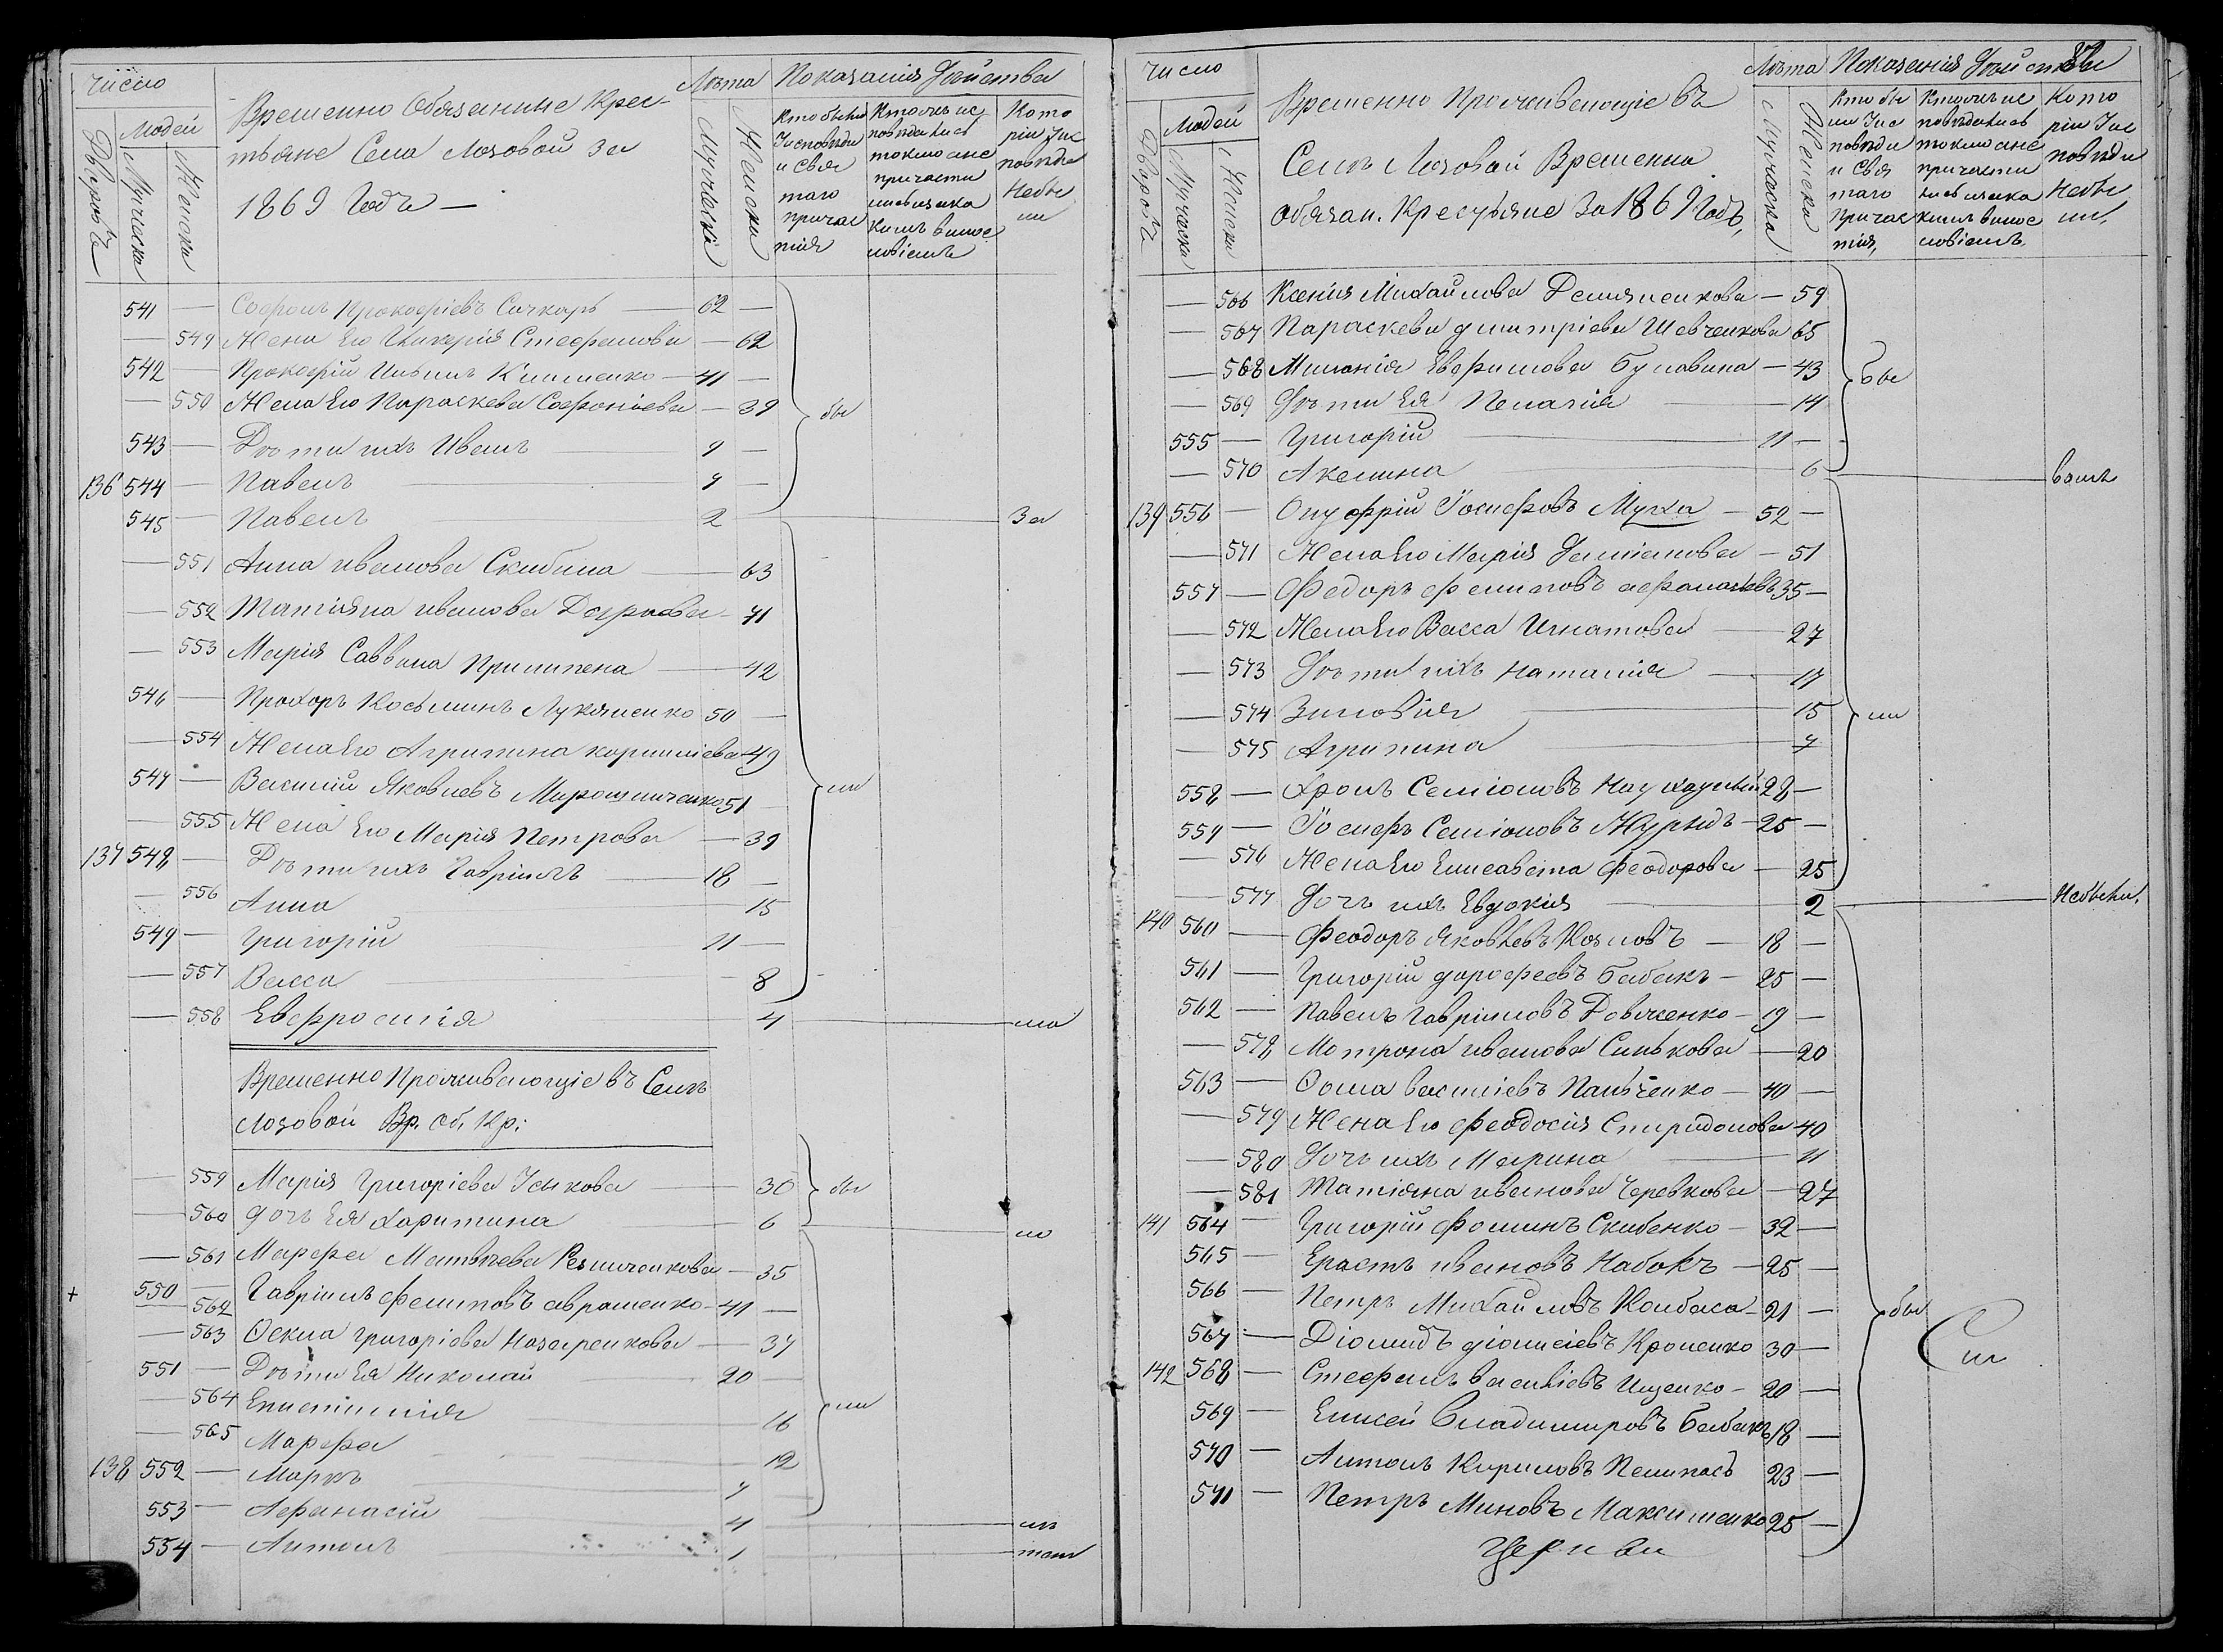 Число
Людей
Дворовъ
Мужеска
Женска
Временно Обязанные Крес-
тьяне Села Лозовой За
1869 Годъ —
Лѣта
Мужескiй
Женски
Показанія Дѣйства
Кто были
Исповѣди
и Свя
таго
причас
тія
Кто жъ ис
повѣдались
токмо а не
причасти
лись и за ка
кимъ винос
ловіемъ
Кото
ріи Iис
повѣди
Небы
ли
541 — Софронъ Прокофіевъ Сичкарь — 62 —
— 549 Жена Его Гликерія Стефанова — 62
542 — Прокофій Ильинъ Клименко — 41 —
— 550 Жена Его Параскева Софоніева — 39 бы
543 — Дѣти ихъ Иванъ 9 —
136 544 — Павелъ — 7 —
545 — Павелъ 2 — За
— 551 Анна иванова Скибина — 63
— 552 Татіяна иванова — 71
— 553 Марія Саввина Прилипена — 42
546 — Прохоръ Косьминъ Лукяненко 50 —
— 554 Жена Его Агрипина корниліева 49
547 — Василій Яковлевъ Мирошниченко 51 — ли
— 555 Жена Его Марія Петрова — 39
137 548 — Дѣти ихъ Гавріилъ — 18 —
— 556 Анна — 15
549 — Григорій 11 —
— 557 Васса — 8
— 558 Евфросинія — 4 — ма
Временно Проживающіе въ Селѣ
Лозовой Вр. Об. Кр:
— 559 Марія Григоріева — 30 бы
— 560 дочь Ея Харитина — 6 — ло
— 561 Марфа Матвѣева — 35
550 — Гавріилъ Филиповъ авраменко — 41 —
562
— 563 Григоріева Назаренкова — 37
551 — Дѣти Ея Николай 20 —
— 564 Епистимія 16 ли
— 565 Марфа — 12
138 552 — Маркъ 7
553 — Афанасій 4 —
554 — Антонъ 1 —
87
Число
Людей
Дворовъ
Мужеска
Женски
Временно Проживающіе въ
Селѣ Лозовой Временно
обязан. Крестьяне За 1869 Годъ,
Лѣта
Мужеска
Женска
Показанія Дѣйства
Кто бы
ли Iис
повѣди
и Свя
таго
Причас
тія,
Кто жъ ис
повѣдались
токмо а не
причасти
лись и за ка
кимъ винос
ловіемъ.
Кото
ріи Iис
повѣди
Небы
ли,
— 566 Ксенія Михайлова Демяненкова — 59
— 567 Параскева дмитріева Шевченкова 65
— 568 Миланія Евфимова Булавина — 43 бы
— 569 Дѣти Ея Пелагія — 14
555 — Григорій — 11 —
— 570 Акелина — 6
139 556 — Онуфрій Іосифовъ Муха — 52 —
— 571 Жена Его Марія Даміанова — 51
557 — Федоръ Филиповъ афанасіевъ 35 —
— 572 Жена Его Васса Игнатова — 27
— 573 Дѣти ихъ Наталія — 17
— 574 Зиновія — 15 ли
— 575 Агрипина — 7
558 — Семіоновъ 28 —
559 — Іосифъ Семіоновъ — 25 —
— 576 Жена Его Елисавета Феодорова — 25
— 577 Дочь ихъ Евдокія — 2 — Небыли.
140 560 — Феодоръ Яковлевъ Козловъ — 18 —
561 — Григорій дорофеевъ Бабакъ — 25 —
562 — Павелъ Гавріиловъ Довженко — 19 —
— 578 Мотрона иванова Синькова — 20
563 — Фома василіевъ Панченко — 40 —
— 579 Жена Его Феодосія Спиридонова 40
— 580 Дочь ихъ Марина — 11
— 581 Татіяна иванова Черевкова — 27
141 564 — Григорій Фоминъ Скибенко — 32 —
565 — Ерастъ ивановъ Набокъ — 25 —
566 — Петръ Михайловъ Колбаса — 21 — бы
567 — Діомидъ діонисіевъ Кроленко 30 —
142 568 — Стефанъ василіевъ Ищенко — 20 —
569 — Елисей Владимировъ Бабакъ 18 —
570 — Антонъ Кириловъ Пелипасъ 23 —
571 — Петръ Миновъ Максименко 25 —